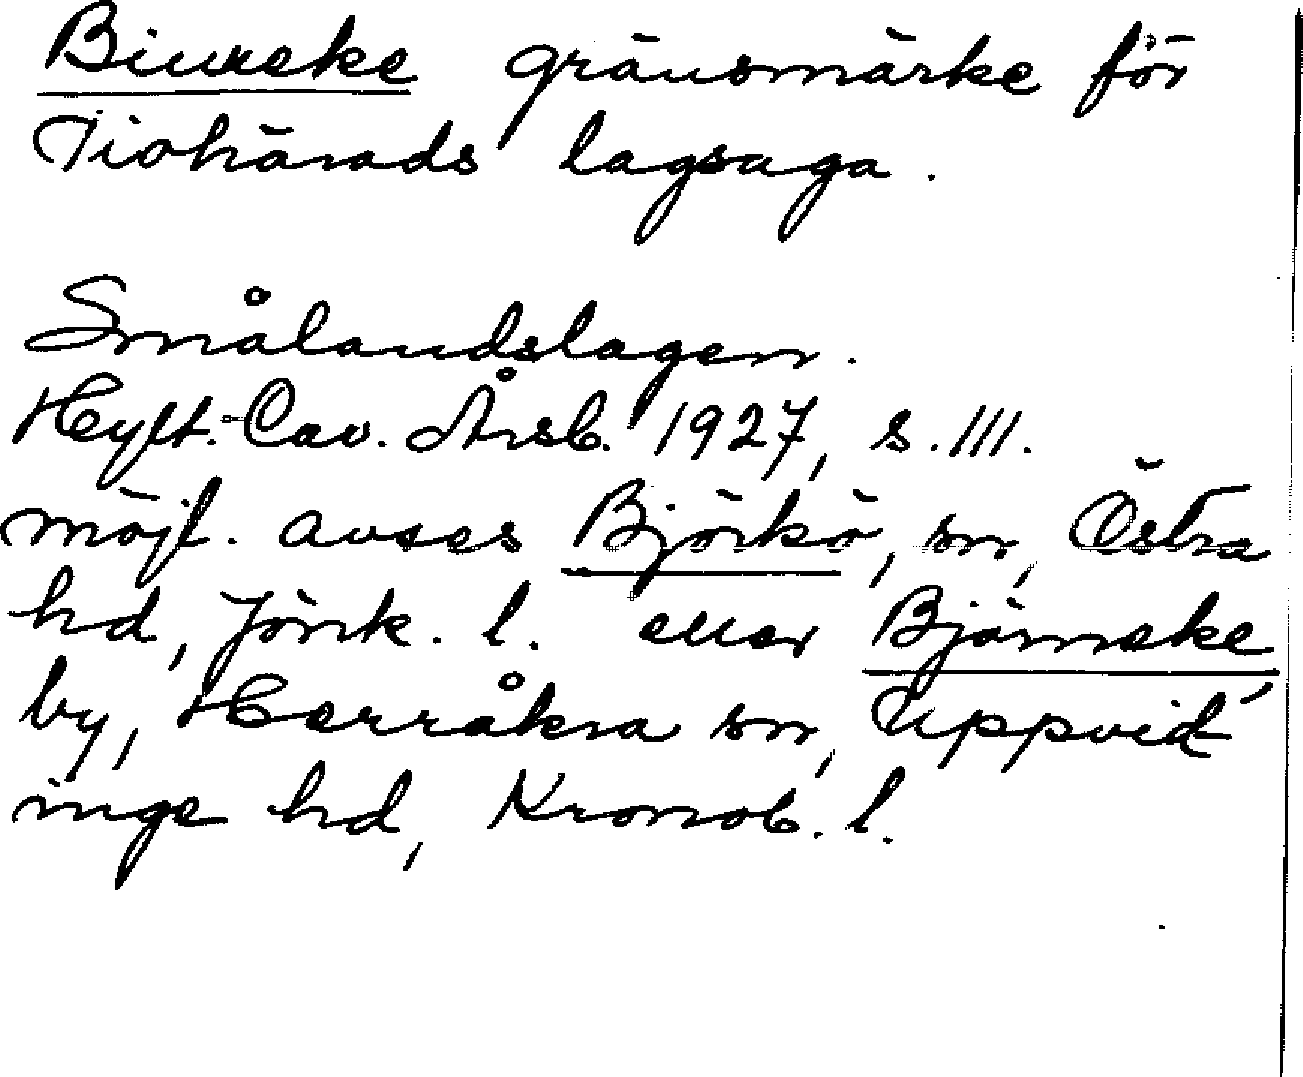 Biureke gränsmärke för
Tiohärads lagsaga.
Smålandslagen.
Hylt.-Cav. Årsb. 1927, s. 111.
möjl. avses Björkö, sn, Östra
hd, Jönk. l. eller Bjärneke
by, Herråkra sn, Uppvid-
inge hd, Kronob. l.